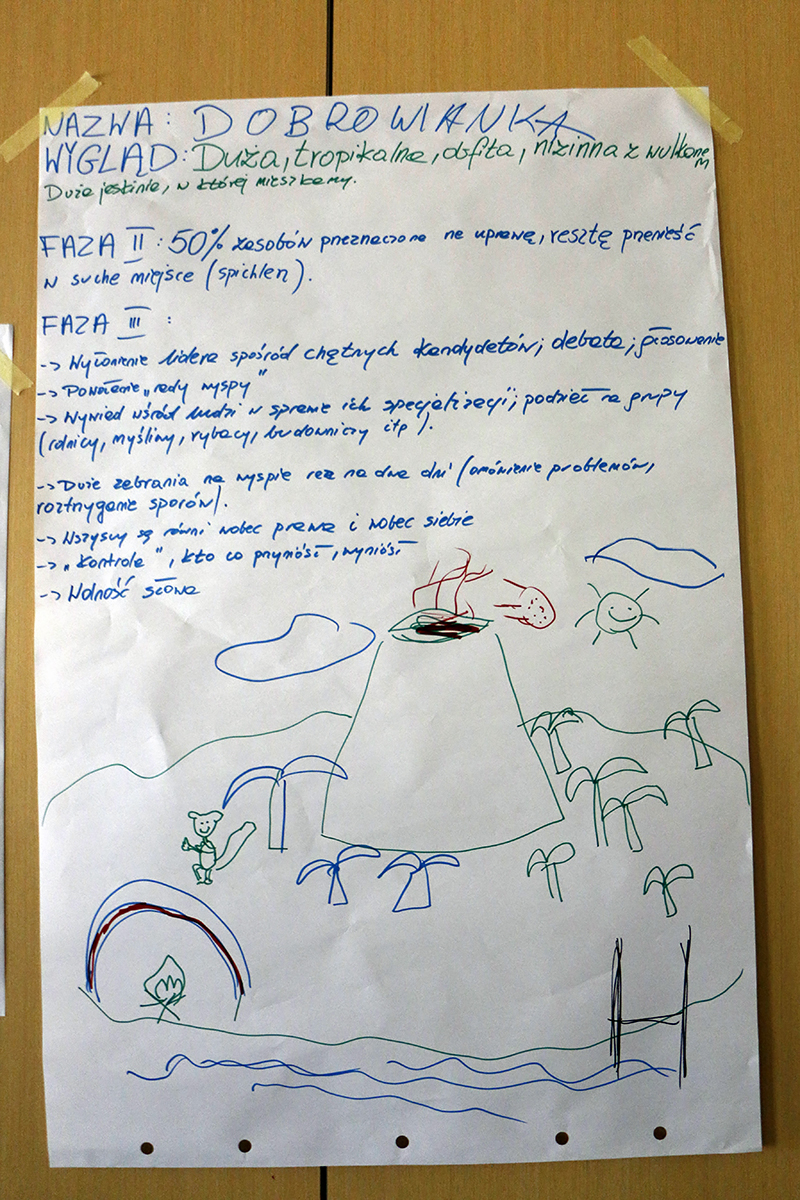 NAZWA: DOBROWIANKA
WYGLĄD: Duża, tropikalna, obfita, nizinna z wulkanem
Duża jaskinia, w której mieszkamy.
FAZA II: 50% zasobów przeznaczone na uprawę, resztę przenieść
w suche miejsce (spichlerz).
FAZA III:
-> Wyłonienie lidera spośród chętnych kandydatów; debata; głosowanie
-> Powołanie „rady wyspy"
-> Wywiad wśród ludzi w sprawie ich specjalizacji; podział na grupy
(rolnicy, myśliwi, rybacy, budowniczy itp).
-> Duże zebrania na wyspie raz na dwa dni (omówienie problemów,
roztrzyganie sporów).
-> Wszyscy są równi wobec prawa i wobec siebie
-> „Kontrola", kto co przyniósł, wyniósł
-> Wolność słowa